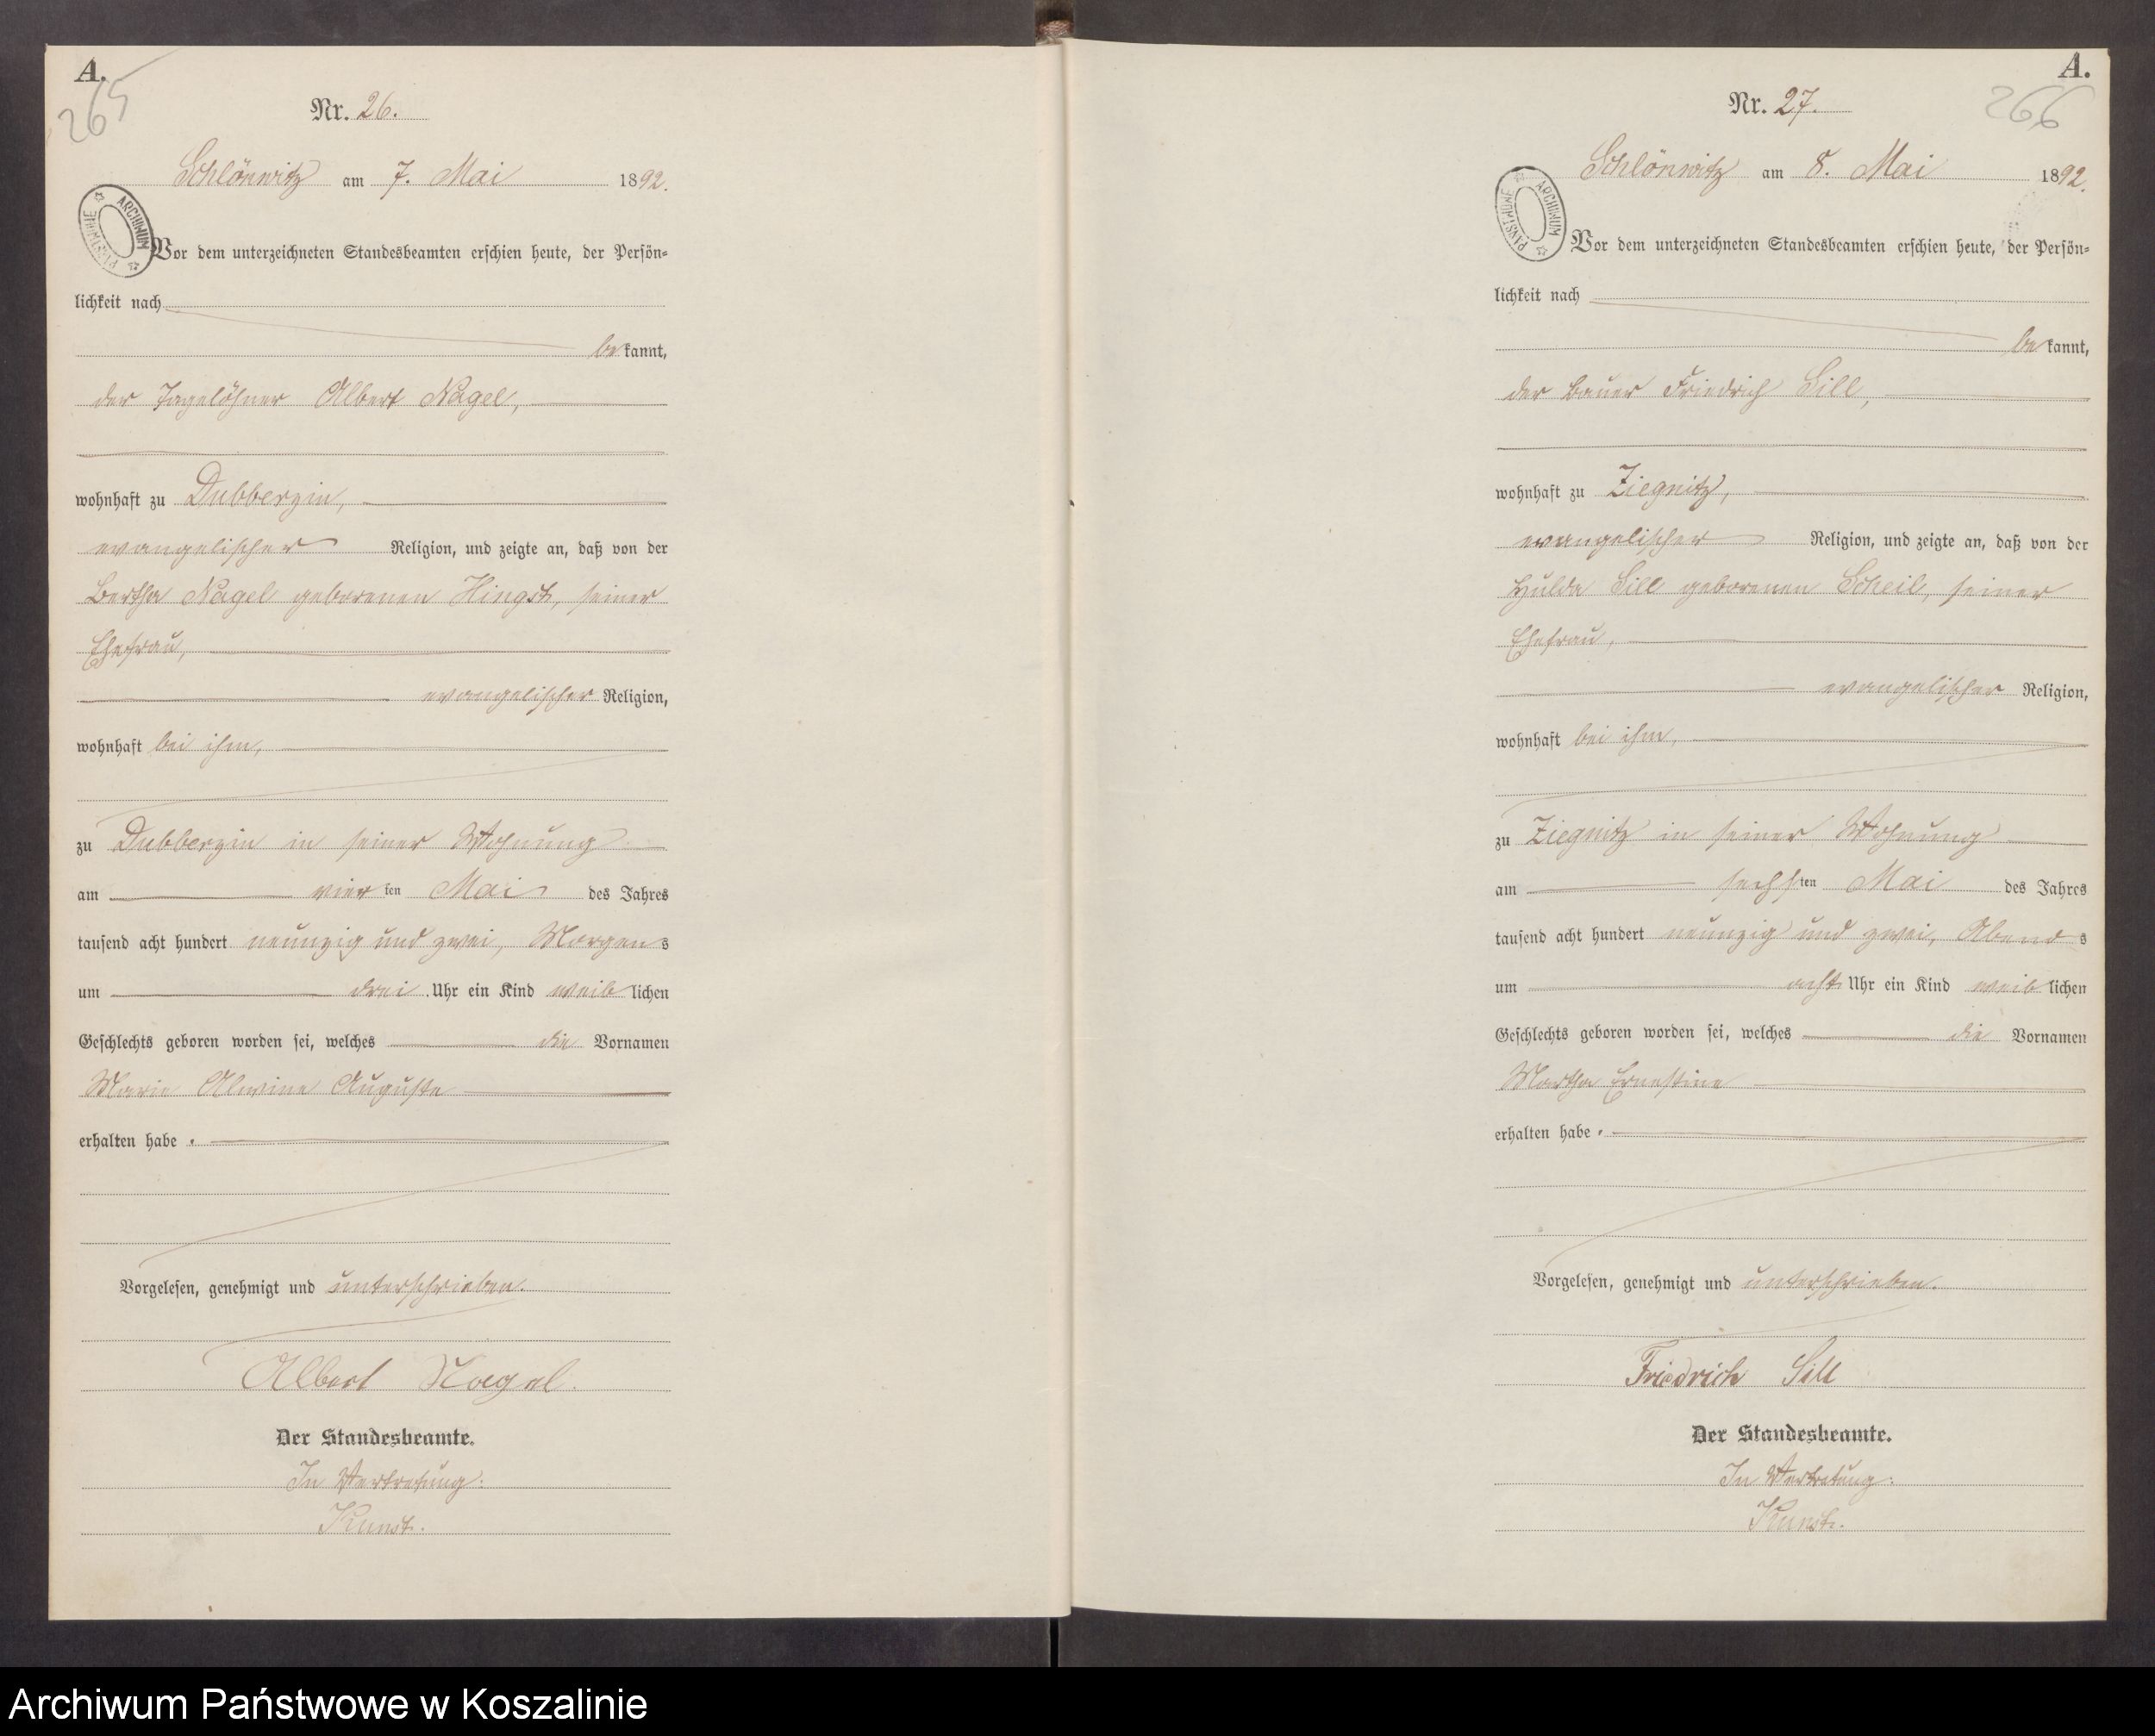 A.
265
Nr. 26.
Schlönwitz am 7. Mai 1892.
ARCHIWUM PAŃSTWOWE
Vor dem unterzeichneten Standesbeamten erschien heute, der Persön-
lichkeit nach
bekannt,
der Tagelöhner Albert Nagel,
wohnhaft zu Dubberzin,
evangelischer Religion, und zeigte an, daß von der
Bertha Nagel geborenen Hingst, seiner
Ehefrau,
evangelischer Religion,
wohnhaft bei ihm,
zu Dubberzin in seiner Wohnung
am vierten Mai des Jahres
tausend acht hundert neunzig und zwei, Morgens
um drei Uhr ein Kind weiblichen
Geschlechts geboren worden sei, welches die Vornamen
Marie Alwine Auguste
erhalten habe.
Vorgelesen, genehmigt und unterschrieben.
Albert Nagel.
Der Standesbeamte.
In Vertretung:
Kunst.
A.
266
Nr. 27.
Schlönwitz am 8. Mai 1892.
ARCHIWUM PAŃSTWOWE
Vor dem unterzeichneten Standesbeamten erschien heute, der Persön-
lichkeit nach
bekannt,
der Bauer Friedrich Sill,
wohnhaft zu Ziegnitz,
evangelischer Religion, und zeigte an, daß von der
Hulda Sill geborenen Scheil, seiner
Ehefrau,
evangelischer Religion,
wohnhaft bei ihm,
zu Ziegnitz in seiner Wohnung
am sechsten Mai des Jahres
tausend acht hundert neunzig und zwei, Abends
um acht Uhr ein Kind weiblichen
Geschlechts geboren worden sei, welches die Vornamen
Martha Ernestine
erhalten habe.
Vorgelesen, genehmigt und unterschrieben.
Friedrich Sill
Der Standesbeamte.
In Vertretung:
Kunst.
Archiwum Państwowe w Koszalinie